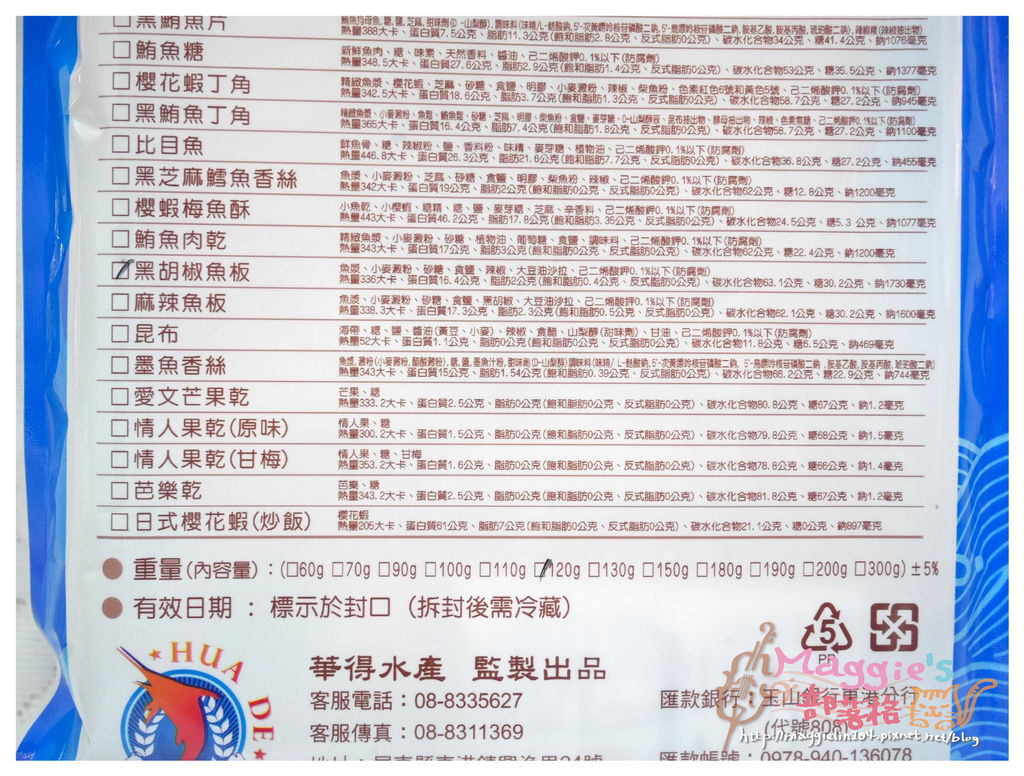 □黑鮪魚片
熱量388大卡、蛋白質7.5公克、脂肪11.3公克(飽和脂肪2.8公克、反式脂肪0公克)、碳水化合物34公克、糖41.4公克、鈉1076毫克
□鮪魚糖 新鮮魚肉、糖、味素、天然香料、醬油、己二烯酸鉀0.1%以下(防腐劑)
熱量348.5大卡、蛋白質27.6公克、脂肪2.9公克(飽和脂肪1.4公克、反式脂肪0公克)、碳水化合物53公克、糖35.5公克、鈉1377毫克
□櫻花蝦丁角 精緻魚漿、櫻花蝦、芝麻、砂糖、食鹽、明膠、小麥澱粉、辣椒、柴魚粉、色素紅色6號和黃色5號、己二烯酸鉀0.1%以下(防腐劑)
熱量342.5大卡、蛋白質18.6公克、脂肪3.7公克(飽和脂肪1.3公克、反式脂肪0公克)、碳水化合物58.7公克、糖27.2公克、鈉945毫克
□黑鮪魚丁角
熱量365大卡、蛋白質16.4公克、脂肪7.4公克(飽和脂肪1.8公克、反式脂肪0公克)、碳水化合物58.7公克、糖27.2公克、鈉1100毫克
□比目魚 鮮魚骨、糖、辣椒粉、鹽、香料粉、味精、麥芽糖、植物油、己二烯酸鉀0.1%以下(防腐劑)
熱量446.8大卡、蛋白質26.3公克、脂肪21.6公克(飽和脂肪7.7公克、反式脂肪0公克)、碳水化合物36.8公克、糖27.2公克、鈉455毫克
□黑芝麻鱈魚香絲 魚漿、小麥澱粉、芝麻、砂糖、食鹽、明膠、柴魚粉、辣椒、己二烯酸鉀0.1%以下(防腐劑)
熱量342大卡、蛋白質19公克、脂肪2公克(飽和脂肪0公克、反式脂肪0公克)、碳水化合物62公克、糖12.8公克、鈉1200毫克
□櫻蝦梅魚酥 小魚乾、小櫻蝦、糖精、糖、鹽、麥芽糖、芝麻、辛香料、己二烯酸鉀0.1%以下(防腐劑)
熱量443大卡、蛋白質46.2公克、脂肪17.8公克(飽和脂肪3.35公克、反式脂肪0公克)、碳水化合物24.5公克、糖5.3 公克、鈉1077毫克
□鮪魚肉乾 精緻魚漿、小麥澱粉、砂糖、植物油、葡萄糖、食鹽、調味料、己二烯酸鉀0.1%以下(防腐劑)
熱量343大卡、蛋白質17公克、脂肪3公克(飽和脂肪0公克、反式脂肪0公克)、碳水化合物62公克、糖22.4公克、鈉1200毫克
□黑胡椒魚板 魚漿、小麥澱粉、砂糖、食鹽、辣椒、大豆油沙拉、己二烯酸鉀0.1%以下(防腐劑)
熱量336大卡、蛋白質16.4公克、脂肪2公克(飽和脂肪0.4公克、反式脂肪0公克)、碳水化合物63.1公克、糖30.2公克、鈉1730毫克
□麻辣魚板 魚漿、小麥澱粉、砂糖、食鹽、黑胡椒、大豆油沙拉、己二烯酸鉀0.1%以下(防腐劑)
熱量338.3大卡、蛋白質17.3公克、脂肪2.3公克(飽和脂肪0.5公克、反式脂肪0公克)、碳水化合物62.1公克、糖30.2公克、鈉1600毫克
□昆布 海帶、糖、鹽、醬油(黃豆、小麥)、辣椒、食醋、山梨醇(甜味劑)、甘油、己二烯酸鉀0.1%以下(防腐劑)
熱量52大卡、蛋白質1.1公克、脂肪0公克(飽和脂肪0公克、反式脂肪0公克)、碳水化合物11.8公克、糖6.5公克、鈉469毫克
□墨魚香絲
熱量343大卡、蛋白質15公克、脂肪1.54公克(飽和脂肪0.39公克、反式脂肪0公克)、碳水化合物66.2公克、糖22.9公克、鈉744毫克
□愛文芒果乾 芒果、糖
熱量333.2大卡、蛋白質2.5公克、脂肪0公克(飽和脂肪0公克、反式脂肪0公克)、碳水化合物80.8公克、糖67公克、鈉1.2毫克
□情人果乾(原味) 情人果、糖
熱量300.2大卡、蛋白質1.5公克、脂肪0公克(飽和脂肪0公克、反式脂肪0公克)、碳水化合物79.8公克、糖68公克、鈉1.5毫克
□情人果乾(甘梅) 情人果、糖、甘梅
熱量353.2大卡、蛋白質1.6公克、脂肪0公克(飽和脂肪0公克、反式脂肪0公克)、碳水化合物78.8公克、糖66公克、鈉1.4毫克
□芭樂乾 芭樂、糖
熱量343.2大卡、蛋白質2.5公克、脂肪0公克(飽和脂肪0公克、反式脂肪0公克)、碳水化合物81.8公克、糖67公克、鈉1.2毫克
□日式櫻花蝦(炒飯) 櫻花蝦
熱量205大卡、蛋白質61公克、脂肪7公克(飽和脂肪0公克、反式脂肪0公克)、碳水化合物21.1公克、糖0公克、鈉897毫克
●重量(內容量)：(□60g □70g □90g □100g □110g □120g □130g □150g □180g □190g □200g □300g)±5%
●有效日期：標示於封口 (拆封後需冷藏)
HUA DE
5
華得水產 監製出品
客服電話：08-8335627
匯款銀行：玉山銀行東港分行
客服傳真：08-8311369
(代號808)
匯款帳號：0978-940-136078
Maggie's
部落格
http://maggielin204.pixnet.net/blog